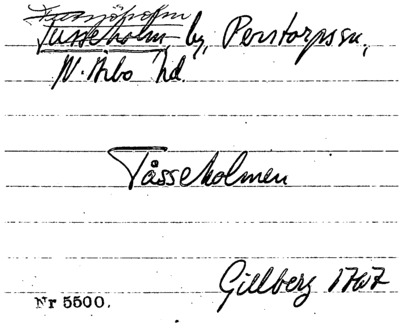 Tusseholm, by, Perstorps sn,
N. Åsbo hd.
Tåsseholmen
Gillberg 1767
Nr 5500.